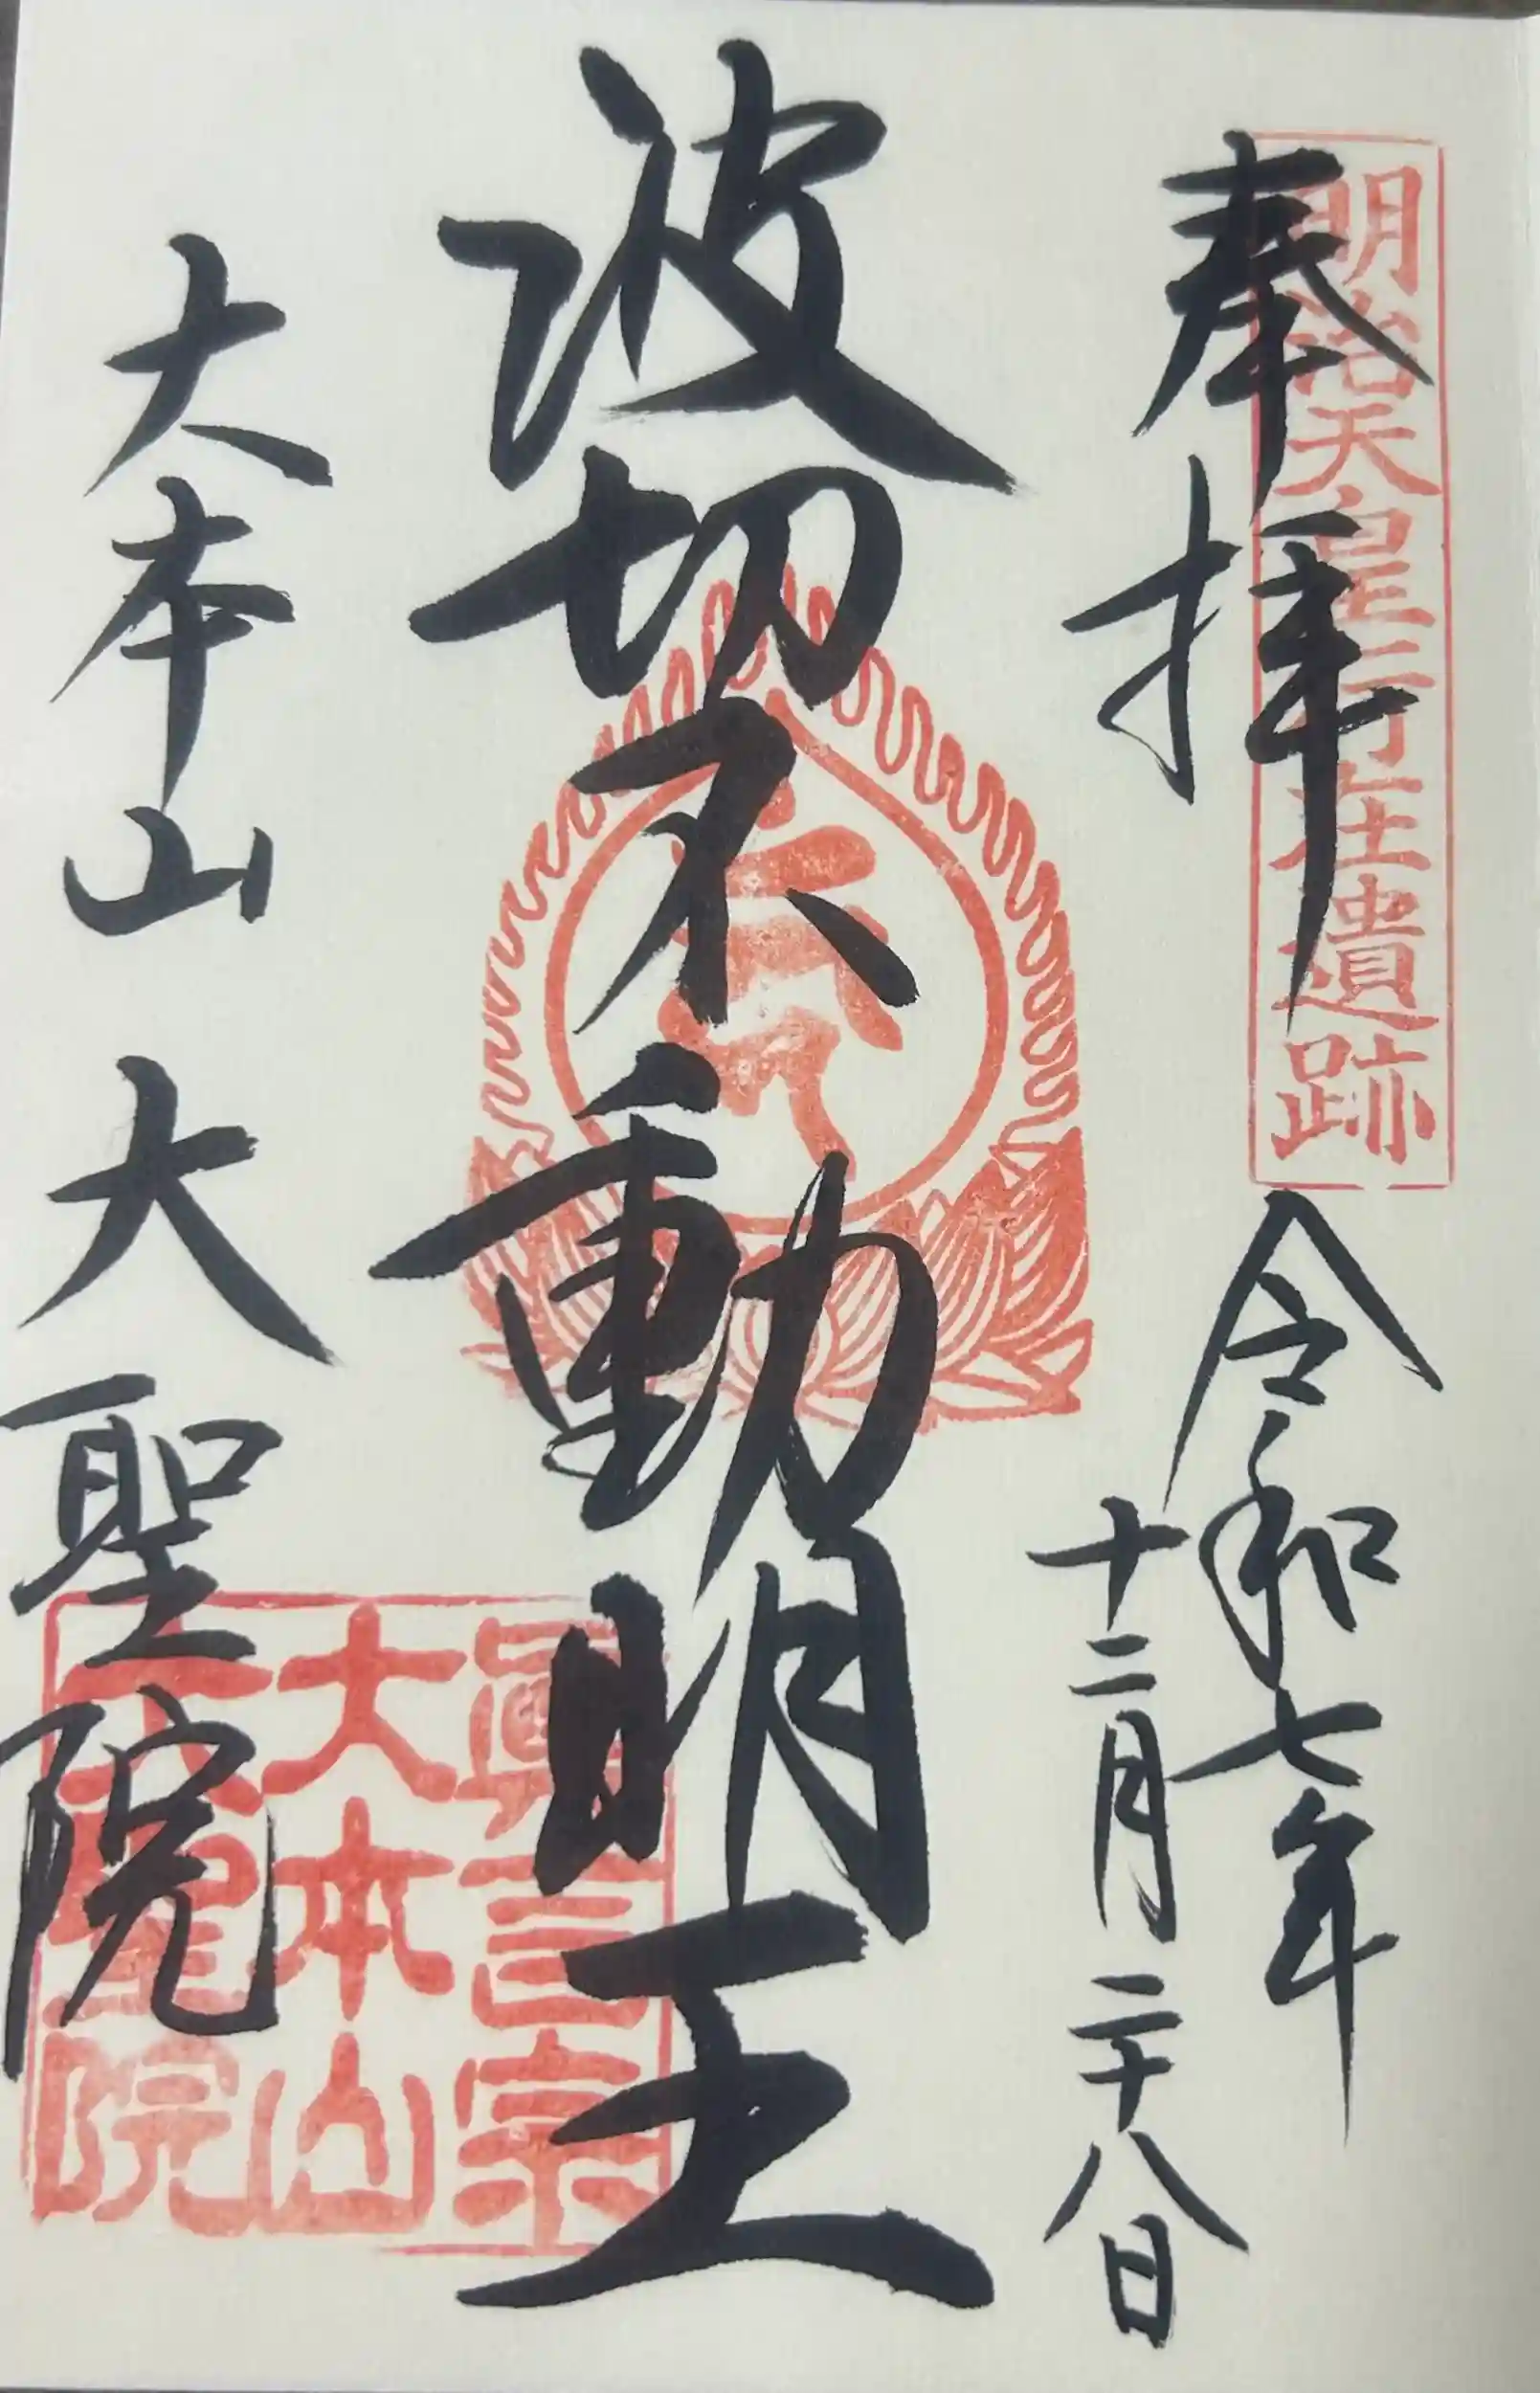 明治天皇行在遺跡
奉拝
令和七年
十二月二十八日
波切不動明王
大本山 大聖院
眞言宗
大本山
大聖院